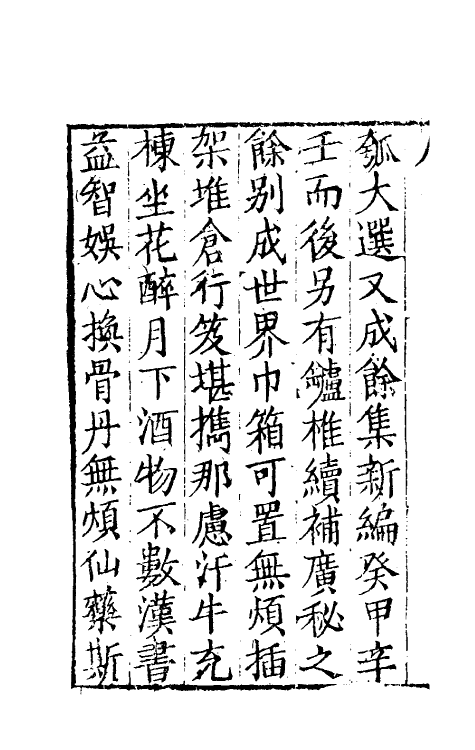 觚大選又成餘集新編癸甲辛
壬而後另有鑪椎續補廣秘之
餘别成世界巾箱可置無煩插
架堆倉行笈堪攜那慮汗牛充
棟坐花醉月下酒物不數漢書
益智娛心換骨丹無煩仙藥斯